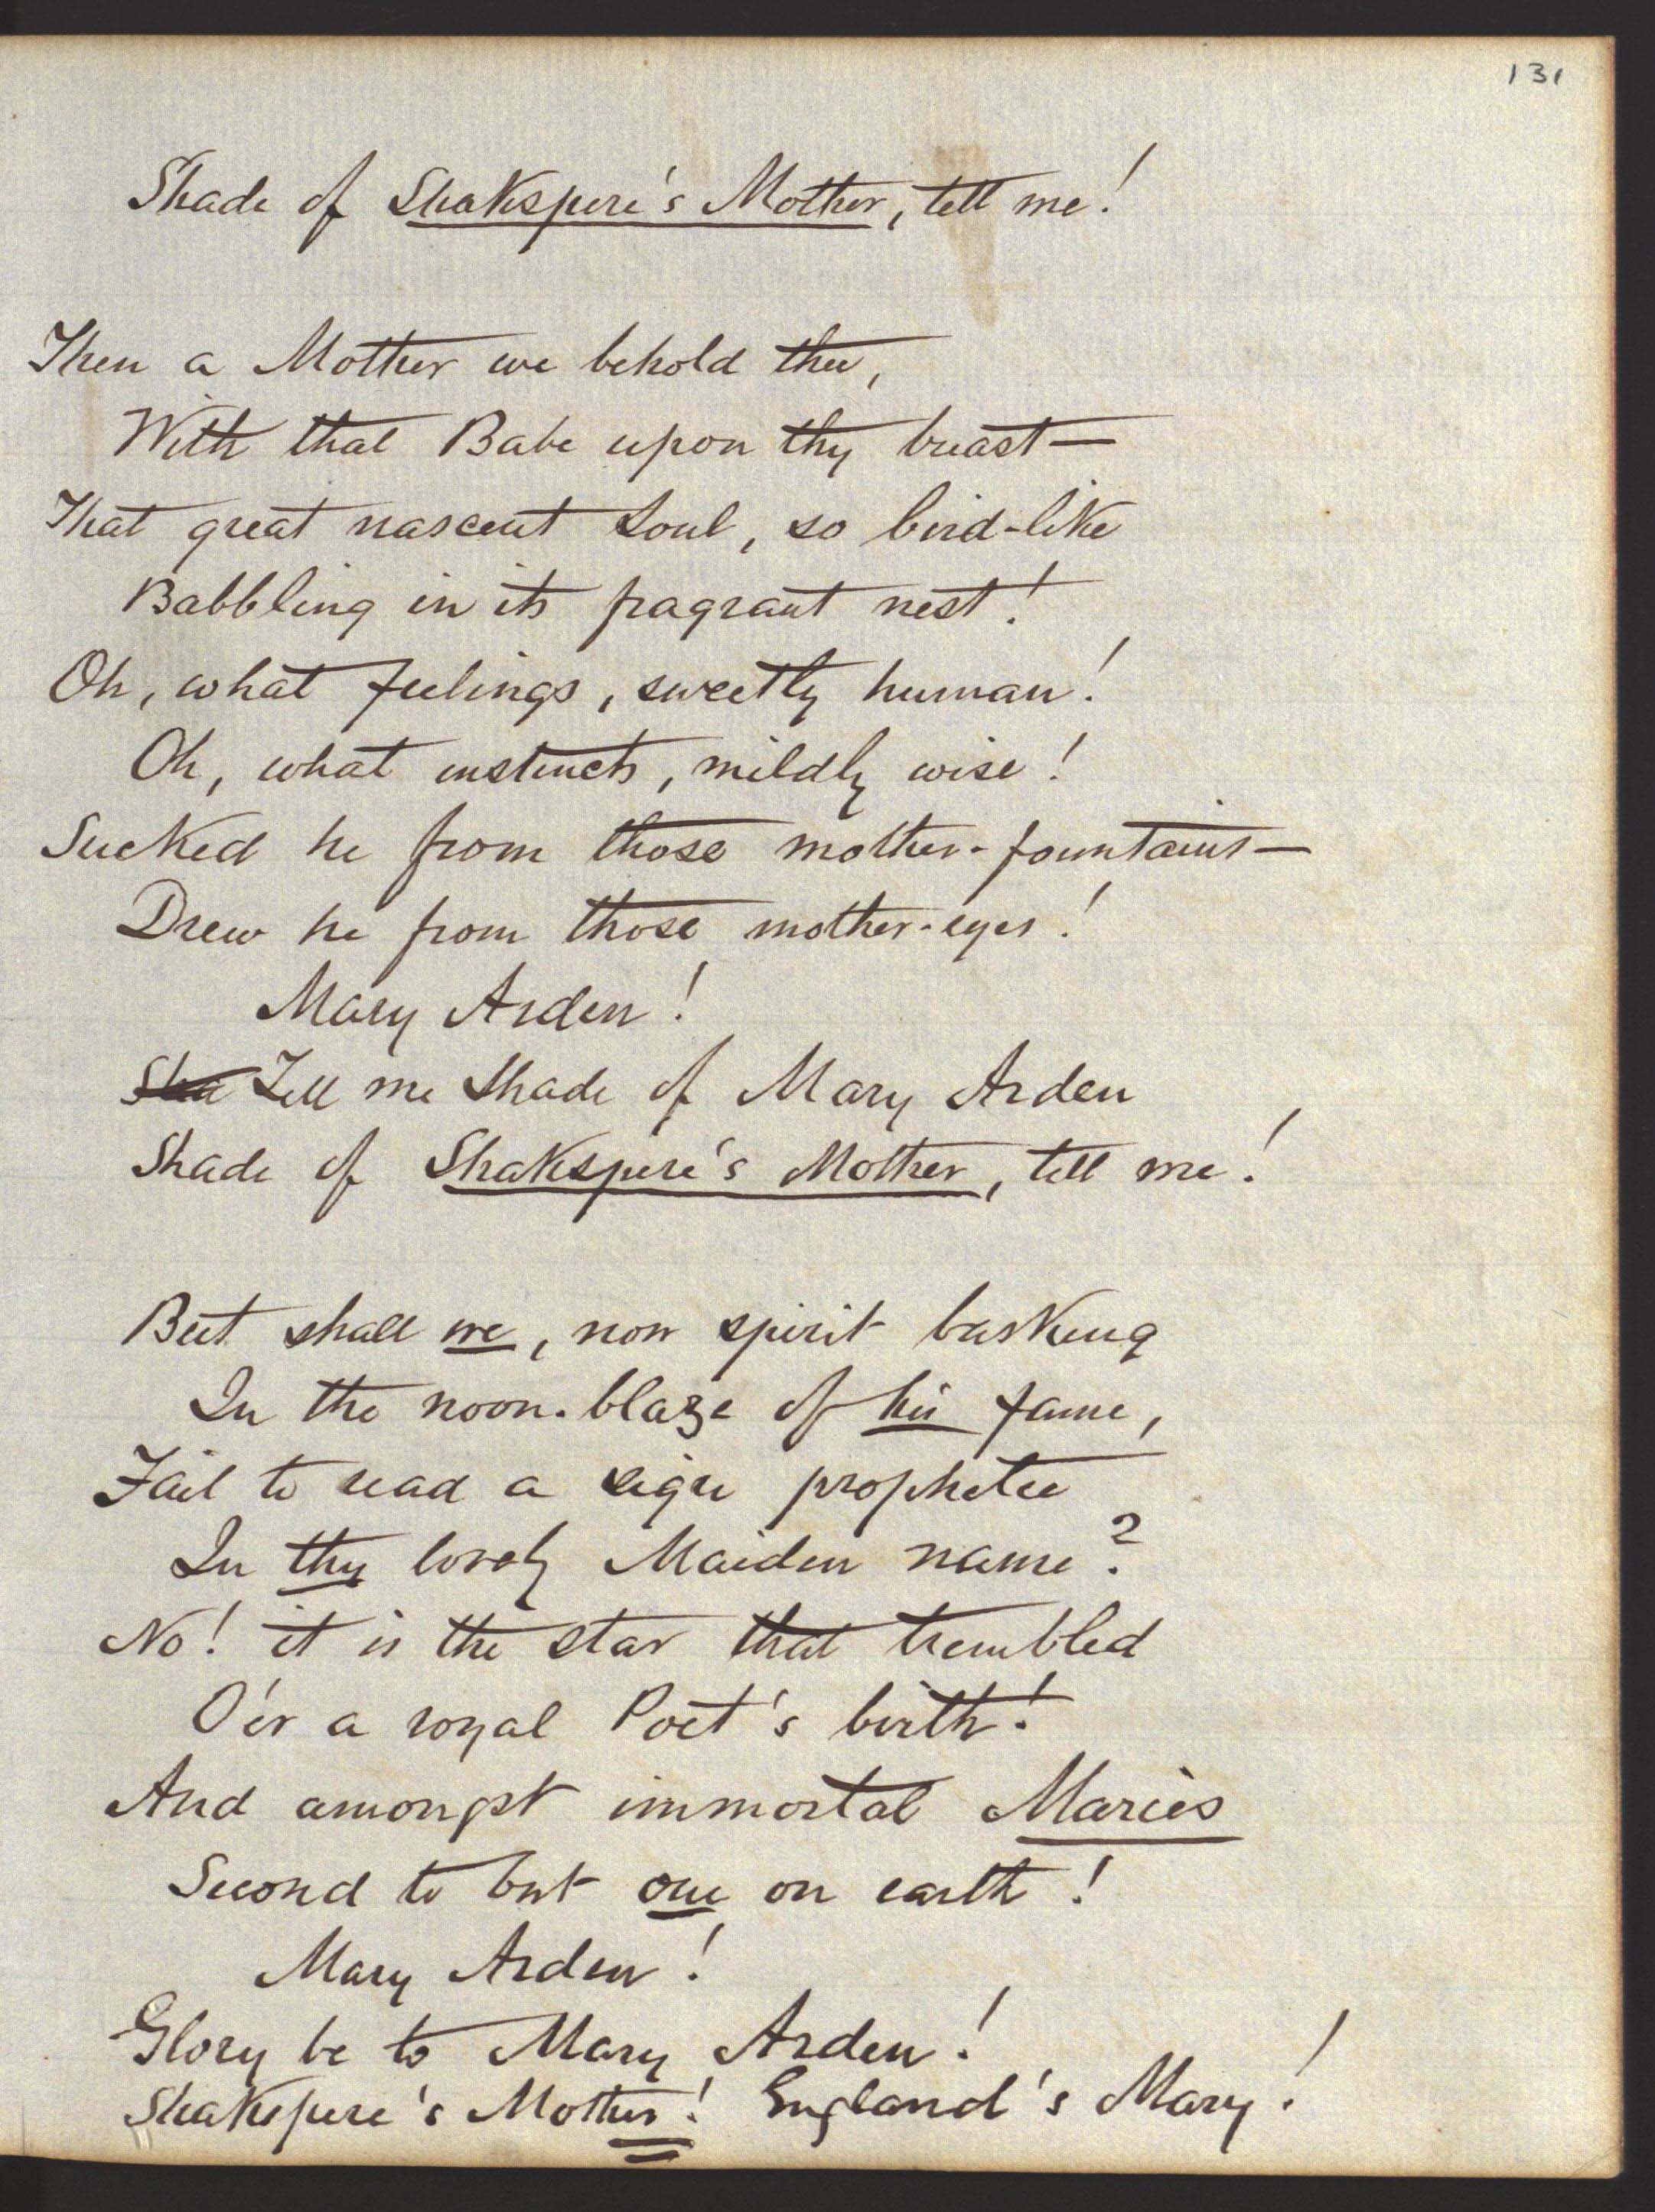 131
Shade of Shakspere's Mother, tell me!
Then a Mother we behold thee,
With that Babe upon thy breast—
That great nascent Soul, so bird-like
Babbling in its fragrant nest!
Oh, what feelings, sweetly human!
Oh, what instincts, mildly wise!
Sucked he from those mother-fountains—
Drew he from those mother-eyes!
Mary Arden!
Sha Tell me Shade of Mary Arden
Shade of Shakspere's Mother, tell me!
But shall we, now spirit basking
In the noon-blaze of his fame,
Fail to read a sign prophetic
In thy lovely Maiden name?
No! it is the star that trembled
O'er a royal Poet's birth!
And amongst immortal Maries
Second to but one on earth!
Mary Arden!
Glory be to Mary Arden!
Shakspere's Mother! England's Mary!